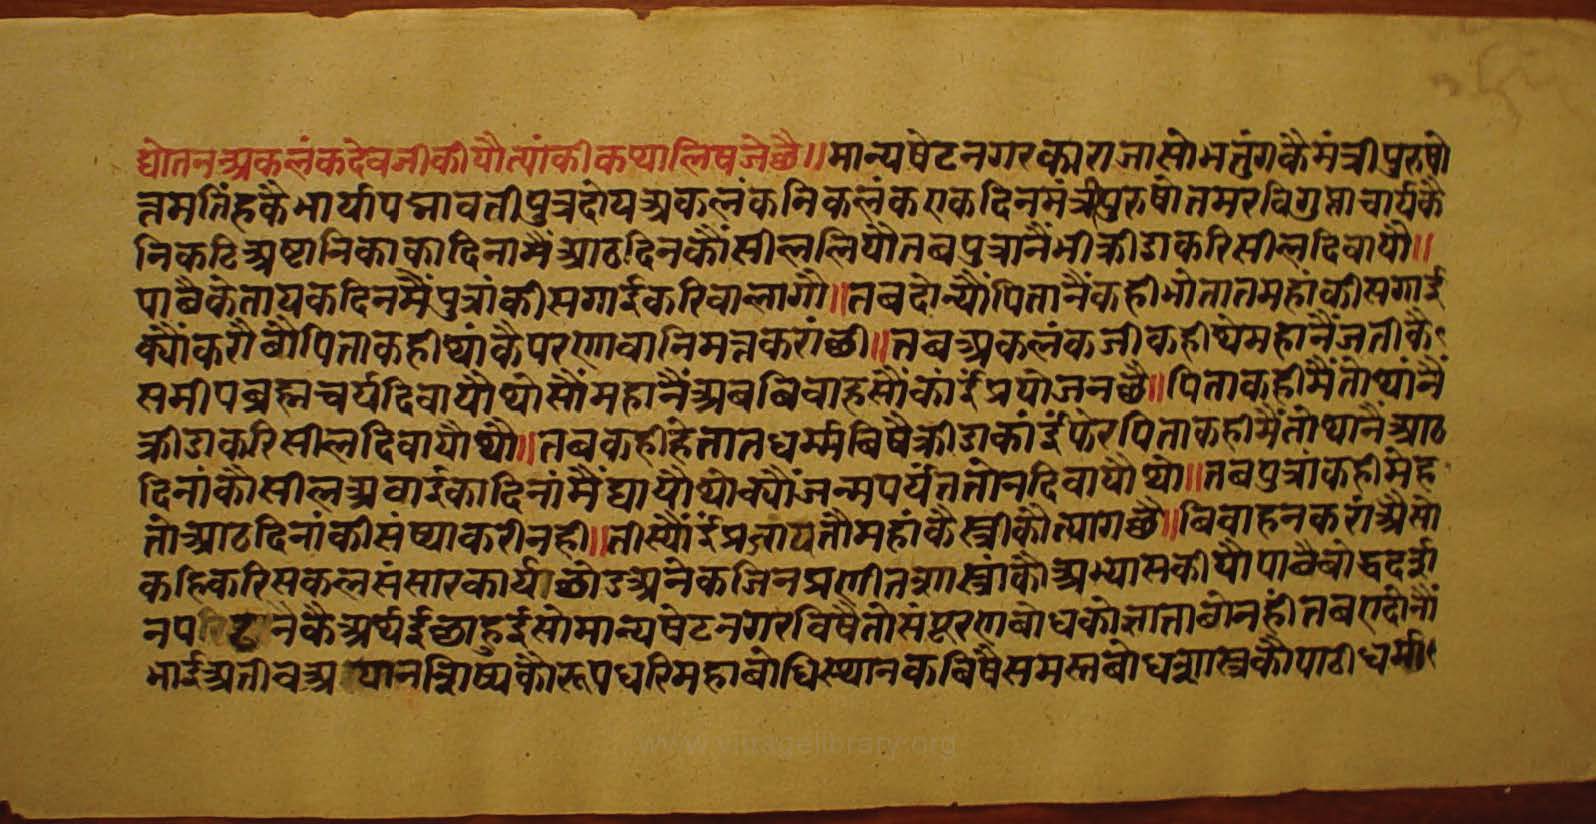 द्योतनअकलंकदेवजीकीयौत्यांकीकथालिषजेछै॥मान्यषेटनगरकाराजासोभतुंगकैमंत्रीपुरुषो
त्तमतिंहकैभार्यापद्मावतीपुत्रदोयअकलंकनिकलंकएकदिनमंत्रीपुरुषोतमरविगुप्ताचार्यकै
निकटिअष्टानिकाकादिनामैंआठदिनकौंसीललियौतबपुत्रानैंभीक्रीडाकरिसीलदिवायौ॥
पाछैकेतायकदिनमैंपुत्रांकीसगाईकरिवालागौ॥तबदोन्यौंपितानैंकहीभोतातमहांकीसगाई
क्यौंकरौछौपिताकहीथांकैपरणावानिमत्तकरांछी॥तबअकलंकजीकहीथेमहानैंजतीकै
समीपब्रह्मचर्यदिवायौथोसौंमहानैंअबबिवाहसौंकांईप्रयोजनछै॥पिताकहीमैंतोथांनैं
क्रीडाकरिसीलदिवायौथौ॥तबकहीहेतातधर्म्मबिषैक्रीडाकांईफेरपिताकहीमैंतोथानैंआठ
दिनांकौसीलअवाईकादिनांमैंद्यायौथोक्यौंजन्मपर्यंततोनदिवायौथो॥तबपुत्रांकहीमेह
तोआठदिनांकीसंष्याकरीनही॥तीस्यौंईंप्रजायतौमहांकैस्त्रीकौत्यागछै॥बिवाहनकरांअैसो
कहिकरिसकलसंसारकार्यछोडअनेकजिनप्रणीतशास्त्रांकौअभ्यासकीयौपाछैबोद्धदर्श
नपनैकैअर्थईछाहुईसोमान्यषेटनगरविषैतोसंपूरणबोधकोज्ञाताबोनहींतबएदोनौं
भाईअतीवअयानशिष्यकौरूपधरिमहाबोधिस्थानकबिषैसमस्तबोधशास्त्रकौपाठीधर्मा
www.vitragelibrary.org